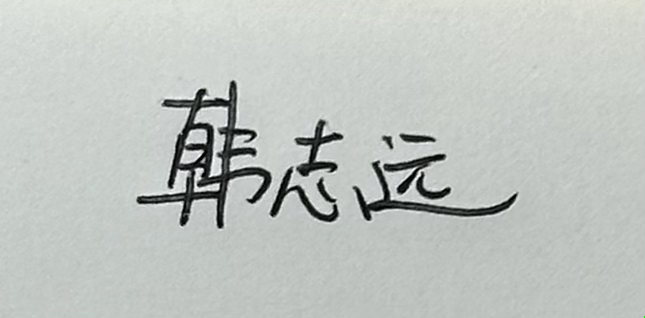 韩志远